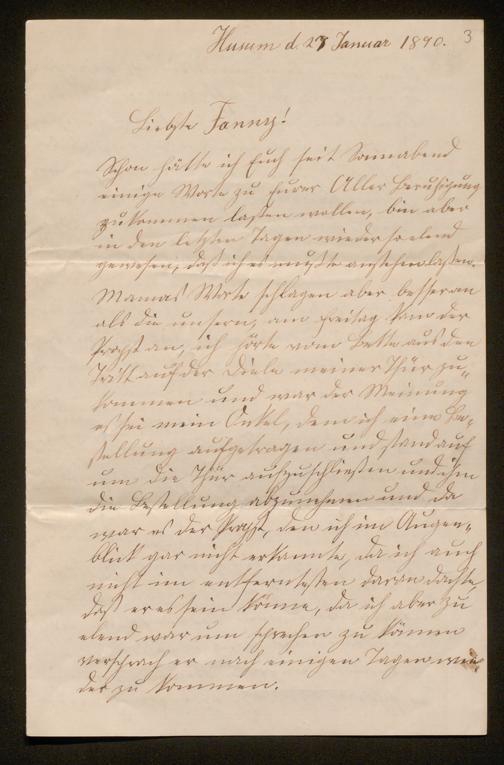 3
Husum d. 28 Januar 1890.
Liebste Fanny!
Schon hätte ich Euch seit Sonnabend
einige Worte zu Eurer Aller Beruhigung
zukommen laßen wollen, bin aber
in den letzten Tagen wieder so elend
gewesen, daß ich es mußte anstehen laßen.
Mamas Worte schlagen aber besser an
als die unsern, am Freitag kam der
Propst an, ich hörte vom Bette aus den
Tritt auf der Diele meiner Thür zu-
kommen und war der Meinung
es sei mein Onkel, dem ich eine Be-
stellung aufgetragen und stand auf
um die Thür aufzuschließen und ihm
die Bestellung abzunehmen und da
war es der Propst, den ich im Augen-
blick gar nicht erkannte, da ich auch
nicht im entferntesten daran dachte,
daß er es sein könne, da ich aber zu
elend war um sprechen zu können
versprach er nach einigen Tagen wie-
der zu kommen.